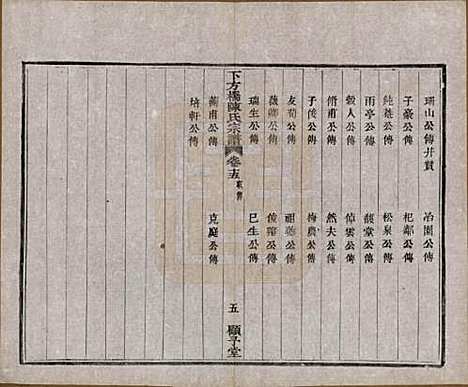 瑞山公傳并贊 冶園公傳
子豪公傳 杞鄰公傳
純葊公傳 松泉公傳
雨亭公傳 馥堂公傳
穀人公傳 倬雲公傳
脩甫公傳 然夫公傳
子俊公傳 梅農公傳
友荀公傳 祖聽公傳
薇卿公傳 俊卿公傳
瑞生公傳 巳生公傳
蘭甫公傳 克庭公傳
培軒公傳
下方橋陳氏宗譜 卷十五 家傳 五 顯子堂